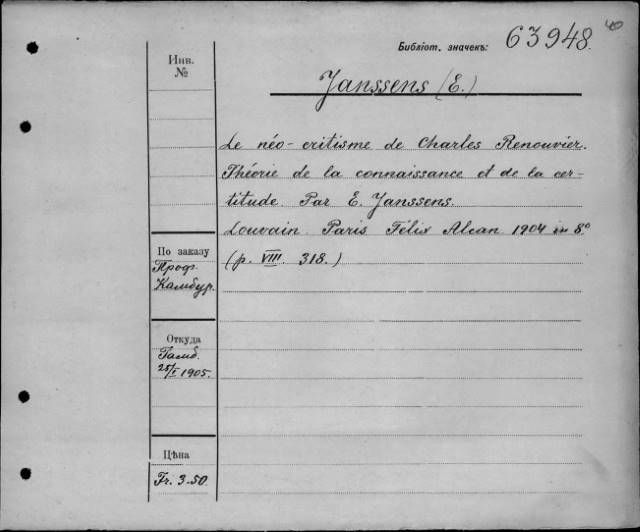 40
Библіот. значекъ: 63948.
Инв.
№
Janssens (E.)
Le néo-critisme de Charles Renouvier.
Théorie de la connaissance et de la cer-
titude. Par E. Janssens.
Louvain. Paris Félix Alcan 1904 in 8°
(p. VIII. 318.)
По заказу
Проф.
Камбур.
Откуда
Гамб.
25/I 1905.
Цѣна
Fr. 3.50.